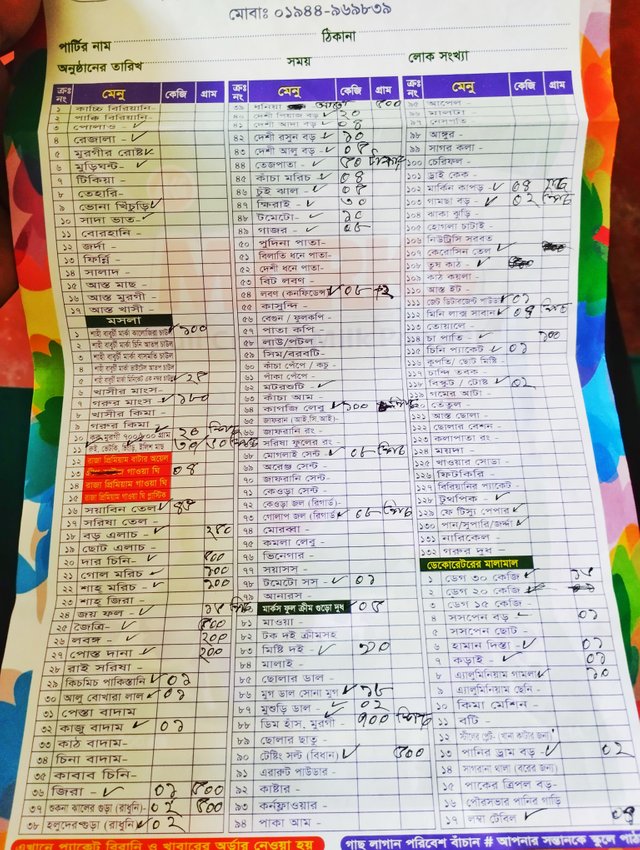 মোবাঃ ০১৯৪৪-৯৬৯৮৩৯
পার্টির নাম ঠিকানা
অনুষ্ঠানের তারিখ সময় লোক সংখ্যা
ক্রঃ নং মেনু কেজি গ্রাম
১ কাচ্চি বিরিয়ানি-
২ পাক্কি বিরিয়ানি-
৩ পোলাও -
৪ রেজালা -
৫ মুরগীর রোষ্ট-
৬ মুড়িঘন্ট -
৭ টিকিয়া -
৮ তেহারি-
৯ ভোনা খিচুড়ি-
১০ সাদা ভাত-
১১ বোরহানি-
১২ জর্দা -
১৩ ফির্নি -
১৪ সালাদ -
১৫ আস্ত মাছ -
১৬ আস্ত মুরগী -
১৭ আস্ত খাসী -
মসলা
১ শাহী বাবুর্চী মার্কা কালোজিরা চাউল ১০০
২ শাহী বাবুর্চী মার্কা চিনি আতপ চাউল
৩ শাহী বাবুর্চী মার্কা বাসমতি চাউল
৫ ২৫
৬ খাসীর মাংস-
৭ গরুর মাংস- ১৮০
৮ খাসীর কিমা -
৯ গরুর কিমা-
১২ রাজা প্রিমিয়াম বাটার অয়েল
১৩ গাওয়া ঘি ০৪
১৪ রাজা প্রিমিয়াম গাওয়া ঘি
১৫ রাজা প্রিমিয়াম গাওয়া ঘি প্লাস্টিক
১৬ সয়াবিন তেল
১৭ সরিষা তেল -
১৮ বড় এলাচ - ২৫০
১৯ ছোট এলাচ -
২০ দার চিনি - ৫০০
২১ গোল মরিচ - ১০০
২২ শাহ্ মরিচ - ১০০
২৩ শাহ্ জিরা -
২৪ জয় ফল -
২৫ জৈত্রি- ৫০
২৬ লবঙ্গ - ২০০
২৭ পোস্ত দানা - ২০০
২৮ রাই সরিষা -
২৯ কিচমিচ পাকিস্তানি ০১
৩০ আলু বোখারা লাল ০১
৩১ পেস্তা বাদাম
৩২ কাজু বাদাম ০১
৩৩ কাঠ বাদাম-
৩৪ চিনা বাদাম-
৩৫ কাবাব চিনি-
৩৬ জিরা - ০১ ৫০০
৩৭ শুকনা ঝালের গুড়া (রাধুনি)- ০২ ৫০০
৩৮ হলুদের গুড়া (রাধুনি) ০২
ক্রঃ নং মেনু কেজি গ্রাম
৩৯ ধনিয়া আস্ত ৫০০
৪০ দেশী পিয়াজ বড় ২০
৪১ দেশী আদা বড় - ০৪
৪২ দেশী রসুন বড় ১০
৪৩ দেশী আলু বড় - ০৫
৪৪ তেজপাতা - ৫০
৪৫ কাঁচা মরিচ - ০৪
৪৬ চুই ঝাল - ০৫
৪৭ ক্ষিরাই - ৩০
৪৮ টমেটো - ১০
৪৯ গাজর - ০৫
৫০ পুদিনা পাতা-
৫১ বিলাতি ধনে পাতা-
৫২ দেশী ধনে পাতা-
৫৩ বিট লবণ -
৫৪ লবণ (কনফিডেন্স)
৫৫ কাসুন্দি -
৫৬ বেগুন / ফুলকপি-
৫৭ পাতা কপি -
৫৮ লাউ/পটল -
৫৯ সিম/বরবটি-
৬০ কাঁচা পেঁপে / কচু -
৬১ পাঁকা পেঁপে -
৬২ মটরশুটি -
৬৩ কাঁচা আম -
৬৪ কাগজি লেবু - ১০০
৬৫ জাফরান (আই.সি.আই)-
৬৬ জাফরানি রং -
৬৭ সরিষা ফুলের রং-
৬৮ মোগলাই সেন্ট -
৬৯ অরেঞ্জ সেন্ট -
৭০ জাফরানি সেন্ট -
৭১ কেওড়া সেন্ট -
৭২ কেওড়া জল (রিগার্ড)-
৭৩ গোলাপ জল (রিগার্ড)
৭৪ মোরব্বা -
৭৫ কমলা লেবু -
৭৬ ভিনেগার -
৭৭ সয়াসস -
৭৮ টমেটো সস - ০১
৭৯ আনারস -
৮০ মার্কস ফুল ক্রীম গুড়ো দুধ ০৫
৮১ মাওয়া
৮২ টক দই ক্রীমসহ
৮৩ মিষ্টি দই - ২০
৮৪ মালাই -
৮৫ ছোলার ডাল -
৮৬ মুগ ডাল সোনা মুগ
৮৭ মুশুড়ি ডাল- ০২
৮৮ ডিম হাঁস, মুরগী -
৮৯ ছোলার ছাতু -
৯০ টেষ্টিং সল্ট (বিধান) ৫০০
৯১ এরারুট পাউডার-
৯২ কাষ্টার -
৯৩ কর্নফ্লাওয়ার -
৯৪ পাকা আম -
ক্রঃ নং মেনু কেজি গ্রাম
৯৫ আপেল -
৯৬ মালটা -
৯৭ নেসপতি -
৯৮ আঙ্গুর -
৯৯ সাগর কলা -
১০০ চেরিফল -
১০১ ড্রাই কেক -
১০২ মার্কিন কাপড়-
১০৩ গামছা বড় - ০২
১০৪ ঝাকা ঝুড়ি -
১০৫ হোগলা চাটাই -
১০৬ নিউট্রিসি সরবত
১০৭ কেরোসিন তেল
১০৮ তুষ কাঠ -
১০৯ কাঠ কয়লা -
১১০ আস্ত ইট -
১১১ জেট ডিটারজেন্ট পাউডার ০১
১১২ মিনি লাক্স সাবান ০৪
১১৩ তোয়ালে -
১১৪ চা পাতি - ১০০
১১৫ চিনি প্যাকেট - ০১
১১৭ চান্দি তবক -
১১৮ বিস্কুট / টোষ্ট ০২
১১৯ গমের আটা -
১২০ তেতুল -
১২১ আস্ত ছোলা -
১২২ ছোলার বেশন -
১২৩ কলাপাতা রং -
১২৪ ময়দা -
১২৫ খাওয়ার সোডা -
১২৬ ফিটকিরি -
১২৭ বিরিয়ানির প্যাকেট -
১২৮ টুথপিক -
১২৯ ফেস টিস্যু পেপার
১৩০ পান/সুপারি/জর্দ্দা
১৩১ নারিকেল -
১৩২ গরুর দুধ -
ডেকোরেটরের মালামাল
১ ডেগ ৩০ কেজি
২ ডেগ ২০ কেজি
৩ ডেগ ১৫ কেজি -
৪ সসপেন বড় - ০১
৫ সসপেন ছোট -
৬ হামান দিস্তা - ০১
৭ কড়াই - ০১
৮ এ্যালুমিনিয়াম গামলা ১০
৯ এ্যালুমিনিয়াম ছেনি -
১০ কিমা মেশিন -
১১ বটি -
১৩ পানির ড্রাম বড় - ০২
১৪ সাগরানা থালা (বরের জন্য)
১৫ পাকের ত্রিপল বড়-
১৬ পৌরসভার পানির গাড়ি
১৭ লম্বা টেবিল ০৪
এখানে প্যাকেট বিরানি ও খাবারের অর্ডার নেওয়া হয়
গাছ লাগান পরিবেশ বাঁচান # আপনার সন্তানকে স্কুলে